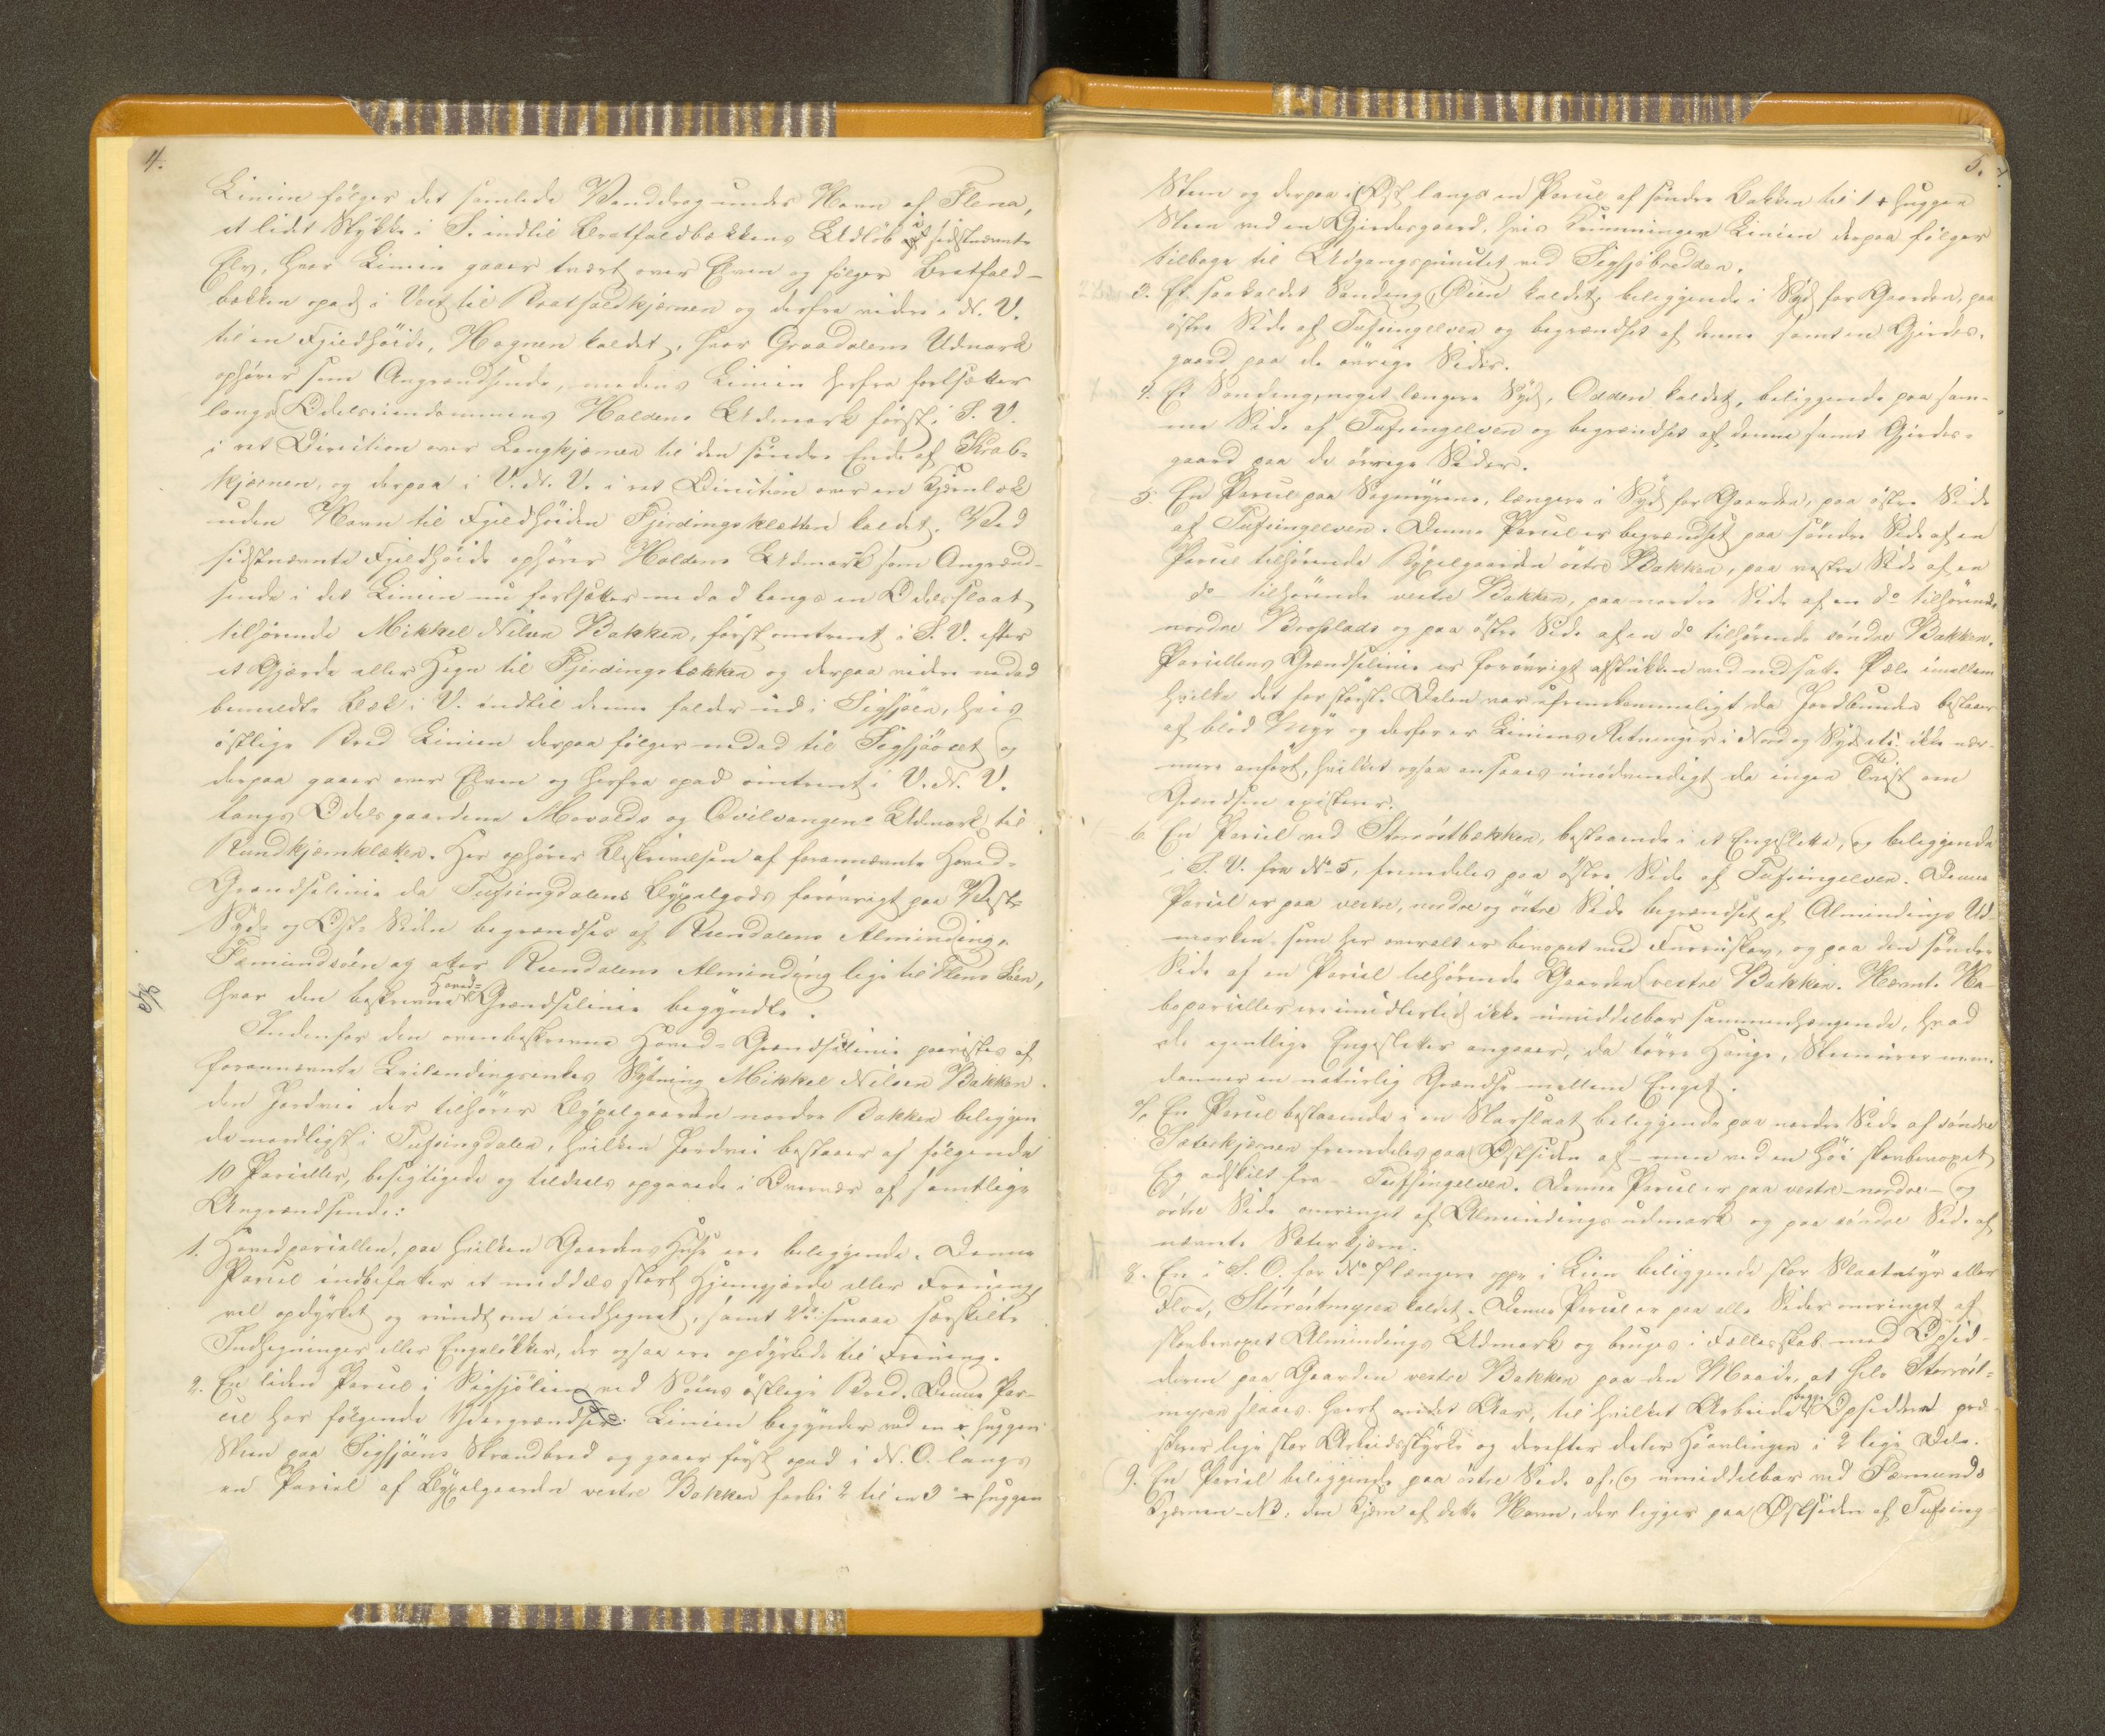 4.
Linien følger det samlede Vanddrag under Navn af Flena,
et lidet Stykke i S. indtil Bratfaldbækkens Udløb i sidstnævnte
Elv, hvor Linien gaaer tvært over Elven og følger Bratfald-
bækken opad i Vest til Bratfaldkjærnen og derfra videre i N. V.
til en Fjeldhöide, Hognen kaldet, hvor Graadalens Udmark
ophörer som Angrændsende, medens Linien herfra fortsætter
langs Odelseiendommens Holdens Udmark först i S. V.
i ret Direction over Langkjærnen til den söndre Ende af Krab-
kjærnen, og derpaa i V. N. V. i ret Direction over en Kjærnbæk
uden Navn til Fjeldhöiden Fjerdingsklætten kaldet. Ved
sidstnævnte Fjeldhöide ophører Holdens Udmark som Angrænd-
sende i det Linien nu fortsætter nedad langs en Odelsslaat
tilhörende Mikkel Nilsen Bakken, först omtrent i S. V. efter
et Gjærde eller Hegn til Fjerdingsbækken og derpaa videre nedad
bemeldte Bæk i V. indtil denne falder ud i Sigsjöen, hvis
östlige Bred Linien derpaa fölger nedad til Sigsjöoset og
derpaa gaaer over Elven og herfra opad omtrent i V. N. V.
langs Odelsgaardene Movolds og Qvilvangens Udmark til
Rundkjærnklæken. Her ophörer Beskrivelsen af forannævnte Hoved-
Grændselinie da Tufsingdalens Bygselgods forövrigt paa Vest-
Syd- og Öst- Siden begrændses af Ruendalens Alminding,
Fæmundsöen og atter Ruendalens Alminding lige til Flens Lien,
hvor den beskrevne Hoved- Grændselinie begyndte.
Indenfor den ovenbeskrevne Hoved- Grændselinie paavistes af
forannævnte Leilændingsenkes Sönning Mikkel Nilsen Bakken
den Jordvei der tilhörer Bygselgaarden nordre Bakken beliggen-
de nordligst i Tufsingdalen, hvilken Jordvei bestaaer af følgende
10 Parceller, besigtigede og tildeels opgaaede i Overvær af samtlige
Angrændsende:
1. Hovedparcellen, paa hvilken Gaardens Huse ere beliggende. Denne
Parcel indbefatter et middels stort Hjemgjærde eller Eröning,
vel opdyrket og rundt om indhegnet, samt 2de smaae særskilte
Indhegninger eller Engeløkker, der ogsaa ere opdyrkede til Eröning.
2. En liden Parcel i Sigsjölien ved Söens östlige Bred. Denne Par-
cel har fölgende Ydergrændser: Linien begynder ved en + huggen
Steen paa Sigsjöens Strandbred og gaaer först opad i N. O. langs
en Parcel af Bygselgaarden vestre Bakken forbi 2 til en 3 + huggen
5.
Steen og derpaa i Öst langs en Parcel af söndre Bakken til 1 + huggen
Steen ved en Gjerdesgaard, hvis Krumninger Linien derpaa fölger
tilbage til Udgangspunctet ved Sigsjöbredden.
3. Et saakaldet Vonding, Öien kaldet, beliggende i Syd for Gaarden, paa
östre Side af Tufsingelven og begrændset af denne samt en Gjerdes-
gaard paa de övrige Sider.
4. Et Vonding, noget længere Syd, Odden kaldet, beliggende paa sam-
me Side af Tufsingelven og begrændset af denne samt Gjerdes-
gaard paa de övrige Sider.
5. En Parcel paa Sagmyrene, længere i Syd for Gaarden, paa östre Side
af Tufsingelven. Denne Parcel er begrændset paa söndre Side af en
Parcel tilhörende Bygselgaarden östre Bakken, paa vestre Side af en
do tilhörende vestre Bakken, paa nordre Side af en do tilhörende
nordre Broplads og paa östre Side af en do tilhörende söndre Bakken.
Parcellens Grændselinie er forövrigt afstukken ved nedsatte Pæle imellem
hvilke det for störste Delen var ufremkommeligt da Jordbunden bestaaer
af blöd Myr og derfor er Liniens Retninger i Nord og Syd etc. ikke nær-
mere anført, hvilket ogsaa ansaaes unödvendigt da ingen Tvist om
Grændsen existerer.
6. En Parcel ved Storröstbækken, bestaaende i et Engeslette, og beliggende
i S. V. fra No 5, fremdeles paa östre Side af Tufsingelven. Denne
Parcel er paa vestre, nordre og östre Side begrændset af Almindings Ud-
marken som her overalt er bevoxet med Furruskov, og paa den söndre
Side af en Parcel tilhörende Gaarden vestre Bakken. Nævnte Na-
boparceller ere imidlertid ikke umiddelbar sammenhængende, hvad
de egentlige Engesletter angaaer, da tørre Hauge, Steenurer m.m.
danner en naturlig Grændse mellem Enget.
7. En Parcel bestaaende i en Starslaat beliggende paa nordre Side af söndre
Sæterkjærnen fremdeles paa Østsiden af – men ved en höi skovbevoxet
Eg adskilt fra – Tufsingelven. Denne Parcel er paa vestre – nordre – og
östre Side omringet af Almindings udmark og paa söndre Side af
nævnte Sæterkjærn.
8. En i S. O. for No 7 længere oppe i Lien beliggende stor Slaatmyr eller
Floe, Storröstmyren kaldet. Denne Parcel er paa alle Sider omringet af
skovbevoxet Almindings Udmark og bruges i Fællesskab med Opsid-
deren paa Gaarden vestre Bakken paa den Maade, at hele Storröst-
myren slaaes hvert andet Aar, til hvilket Arbeide begge Opsiddere præ-
sterer lige stor Arbeidsstyrke og derefter deler Höavlingen i 2 lige Dele.
9. En Parcel beliggende paa östre Side af, og umiddelbar ved Fæmunds
Kjærnen – NB. den Kjærn af dette Navn, der ligger paa Østsiden af Tufsing-